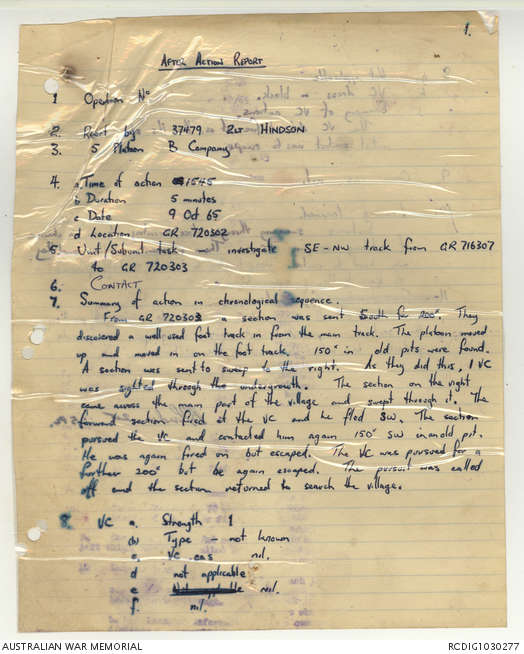 1.
AFTER ACTION REPORT
1 Operation No
2. Report by 37479 2LT HINDSON
3. 5 Platoon B Company
4. a Time of action 1545
b Duration 5 minutes
c Date 9 Oct 65
d Location GR 720302
5. Unit/Subunit task - investigate SE-NW track from GR 716307
to GR 720303
6. CONTACT
7. Summary of action in chronological sequence.
From GR 720303 a section was sent South for 200x. They
discovered a well used foot track in from the main track. The platoon moved
up and moved in on the foot track. 150x in old pits were found.
A section was sent to sweep to the right. As they did this, 1 VC
was sighted through the undergrowth. The section on the right
came across the main part of the village and swept through it. The
forward section fired at the VC and he fled SW. The section
pursued the VC and contacted him again 150x SW in an old pit.
He was again fired on but escaped. The VC was pursued for a
further 200x but he again escaped. The pursuit was called
off and the section returned to search the village.
8. VC a. Strength 1
(b) Type - not known
c. VC cas nil.
d not applicable
e Not applicable nil.
f. nil.
AUSTRALIAN WAR MEMORIAL
RCDIG1030277